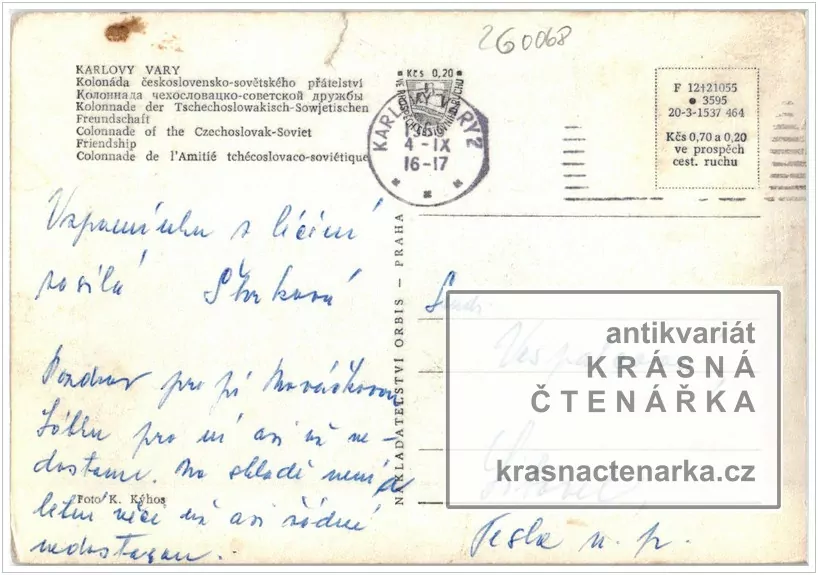 260068
KARLOVY VARY
Kolonáda československo-sovětského přátelství
Колоннада чехословацко-советской дружбы
Kolonnade der Tschechoslowakisch-Sowjetischen
Freundschaft
Colonnade of the Czechoslovak-Soviet
Friendship
Colonnade de l'Amitié tchécoslovaco-soviétique
Kčs 0,20
KARLOVY VARY 2
4-IX
16-17
F 12†21055
3595
20-3-1537 464
Kčs 0,70 a 0,20
ve prospěch
cest. ruchu
Vzpomínku z léčení
posílá
Pozdrav pro pí Nováčkovou
pro ní asi už ne-
dostanu. Na skladě není a
letní věci už asi žádné
nedostanou.
Foto K. Kýhos
NAKLADATELSTVÍ ORBIS — PRAHA
antikvariát
KRÁSNÁ
ČTENÁŘKA
krasnactenarka.cz
Tesla n. p.